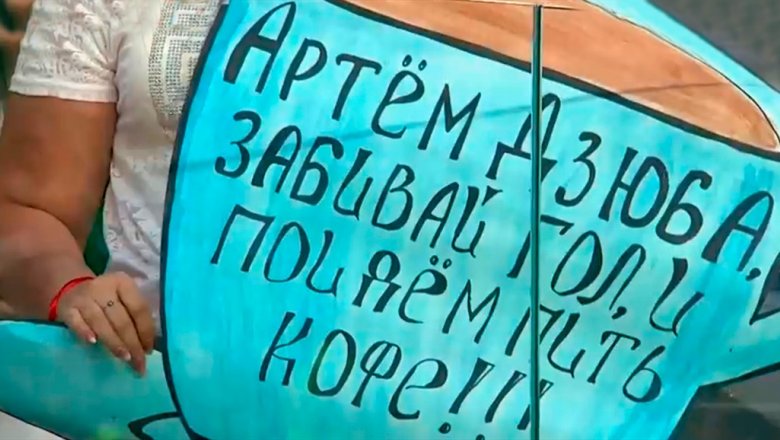 АРТЁМ ДЗЮБА,
ЗАБИВАЙ ГОЛ, И
ПОЙДЁМ ПИТЬ
КОФЕ!!!